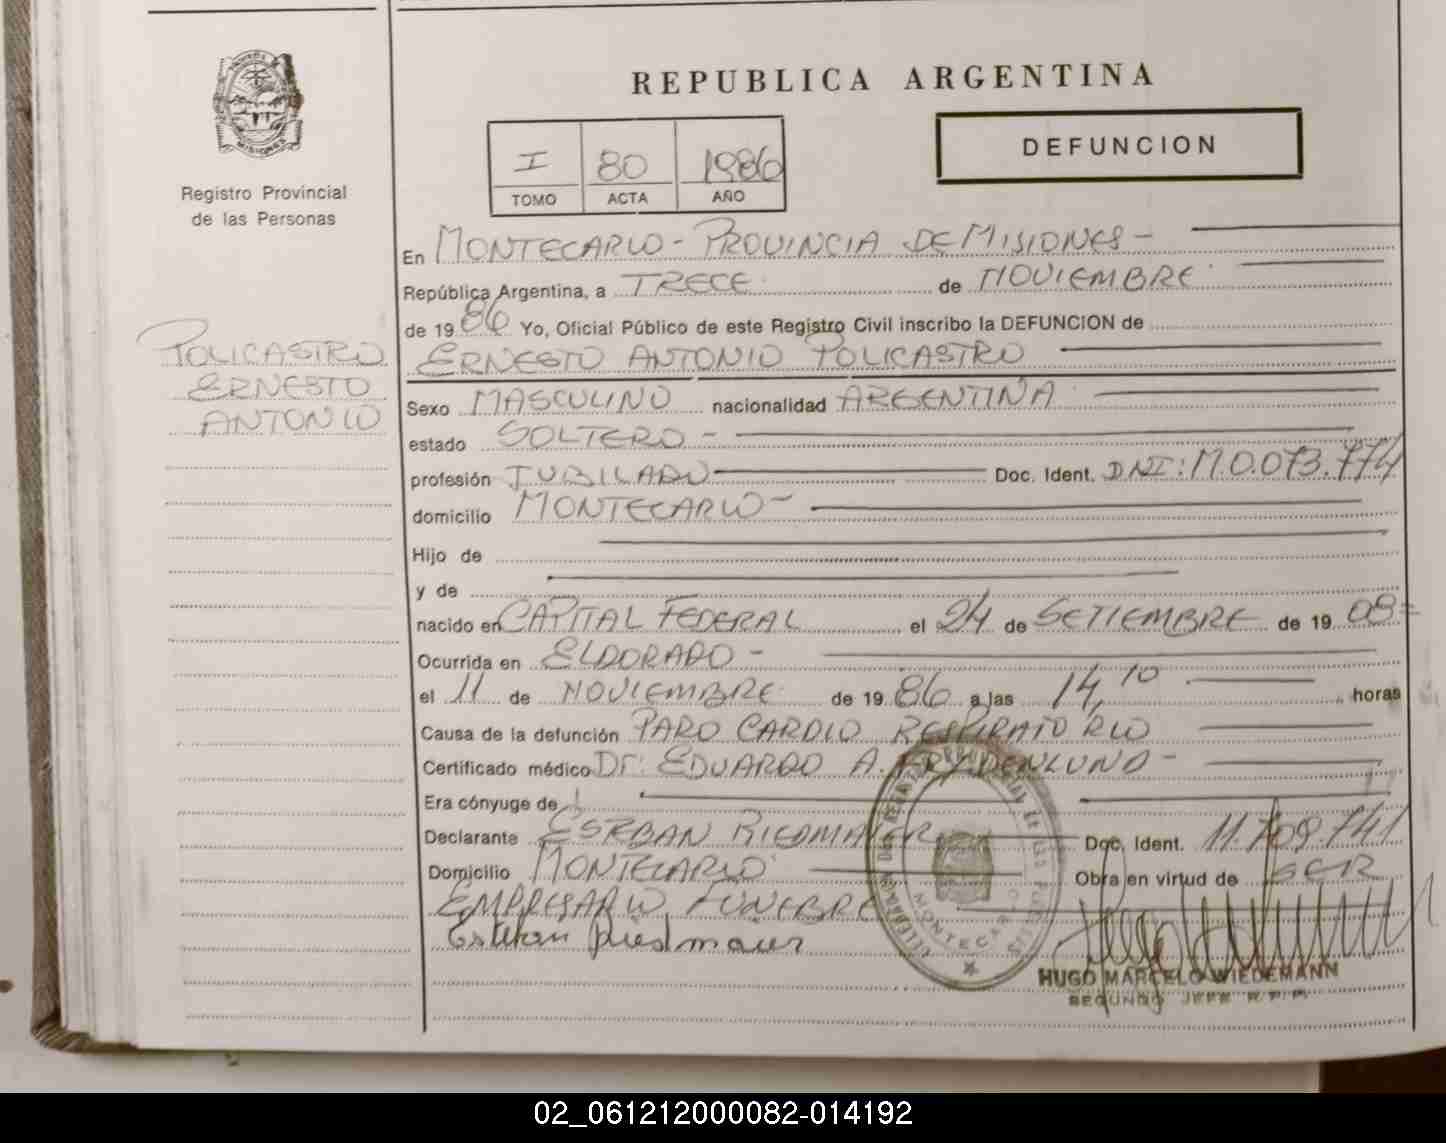 REPUBLICA ARGENTINA
DEFUNCION
I 80 1986
TOMO ACTA AÑO
MISIONES
Registro Provincial
de las Personas
POLICASTRO
ERNESTO
ANTONIO
En MONTECARLO - PROVINCIA DE MISIONES -
República Argentina, a TRECE de NOVIEMBRE
de 1986 Yo, Oficial Público de este Registro Civil inscribo la DEFUNCION de
ERNESTO ANTONIO POLICASTRO
Sexo MASCULINO nacionalidad ARGENTINA
estado SOLTERO -
profesión JUBILADO Doc. Ident. DNI: M.0.073.774
domicilio MONTECARLO -
Hijo de
y de
nacido en CAPITAL FEDERAL el 24 de SETIEMBRE de 1908=
Ocurrida en ELDORADO -
el 11 de NOVIEMBRE de 1986 a las 14,10 horas
Causa de la defunción PARO CARDIO RESPIRATORIO
Certificado médico Dr: EDUARDO A. FRYDENLUND -
Era cónyuge de
Declarante ESTEBAN RIEDMAIER Doc. Ident. 11.709.741
Domicilio MONTECARLO Obra en virtud de SER
EMPRESARIO FUNEBRE
Esteban Riedmaier
MONTECARLO
HUGO MARCELO WIEDEMANN
SEGUNDO JEFE R.P.P.
02_061212000082-014192